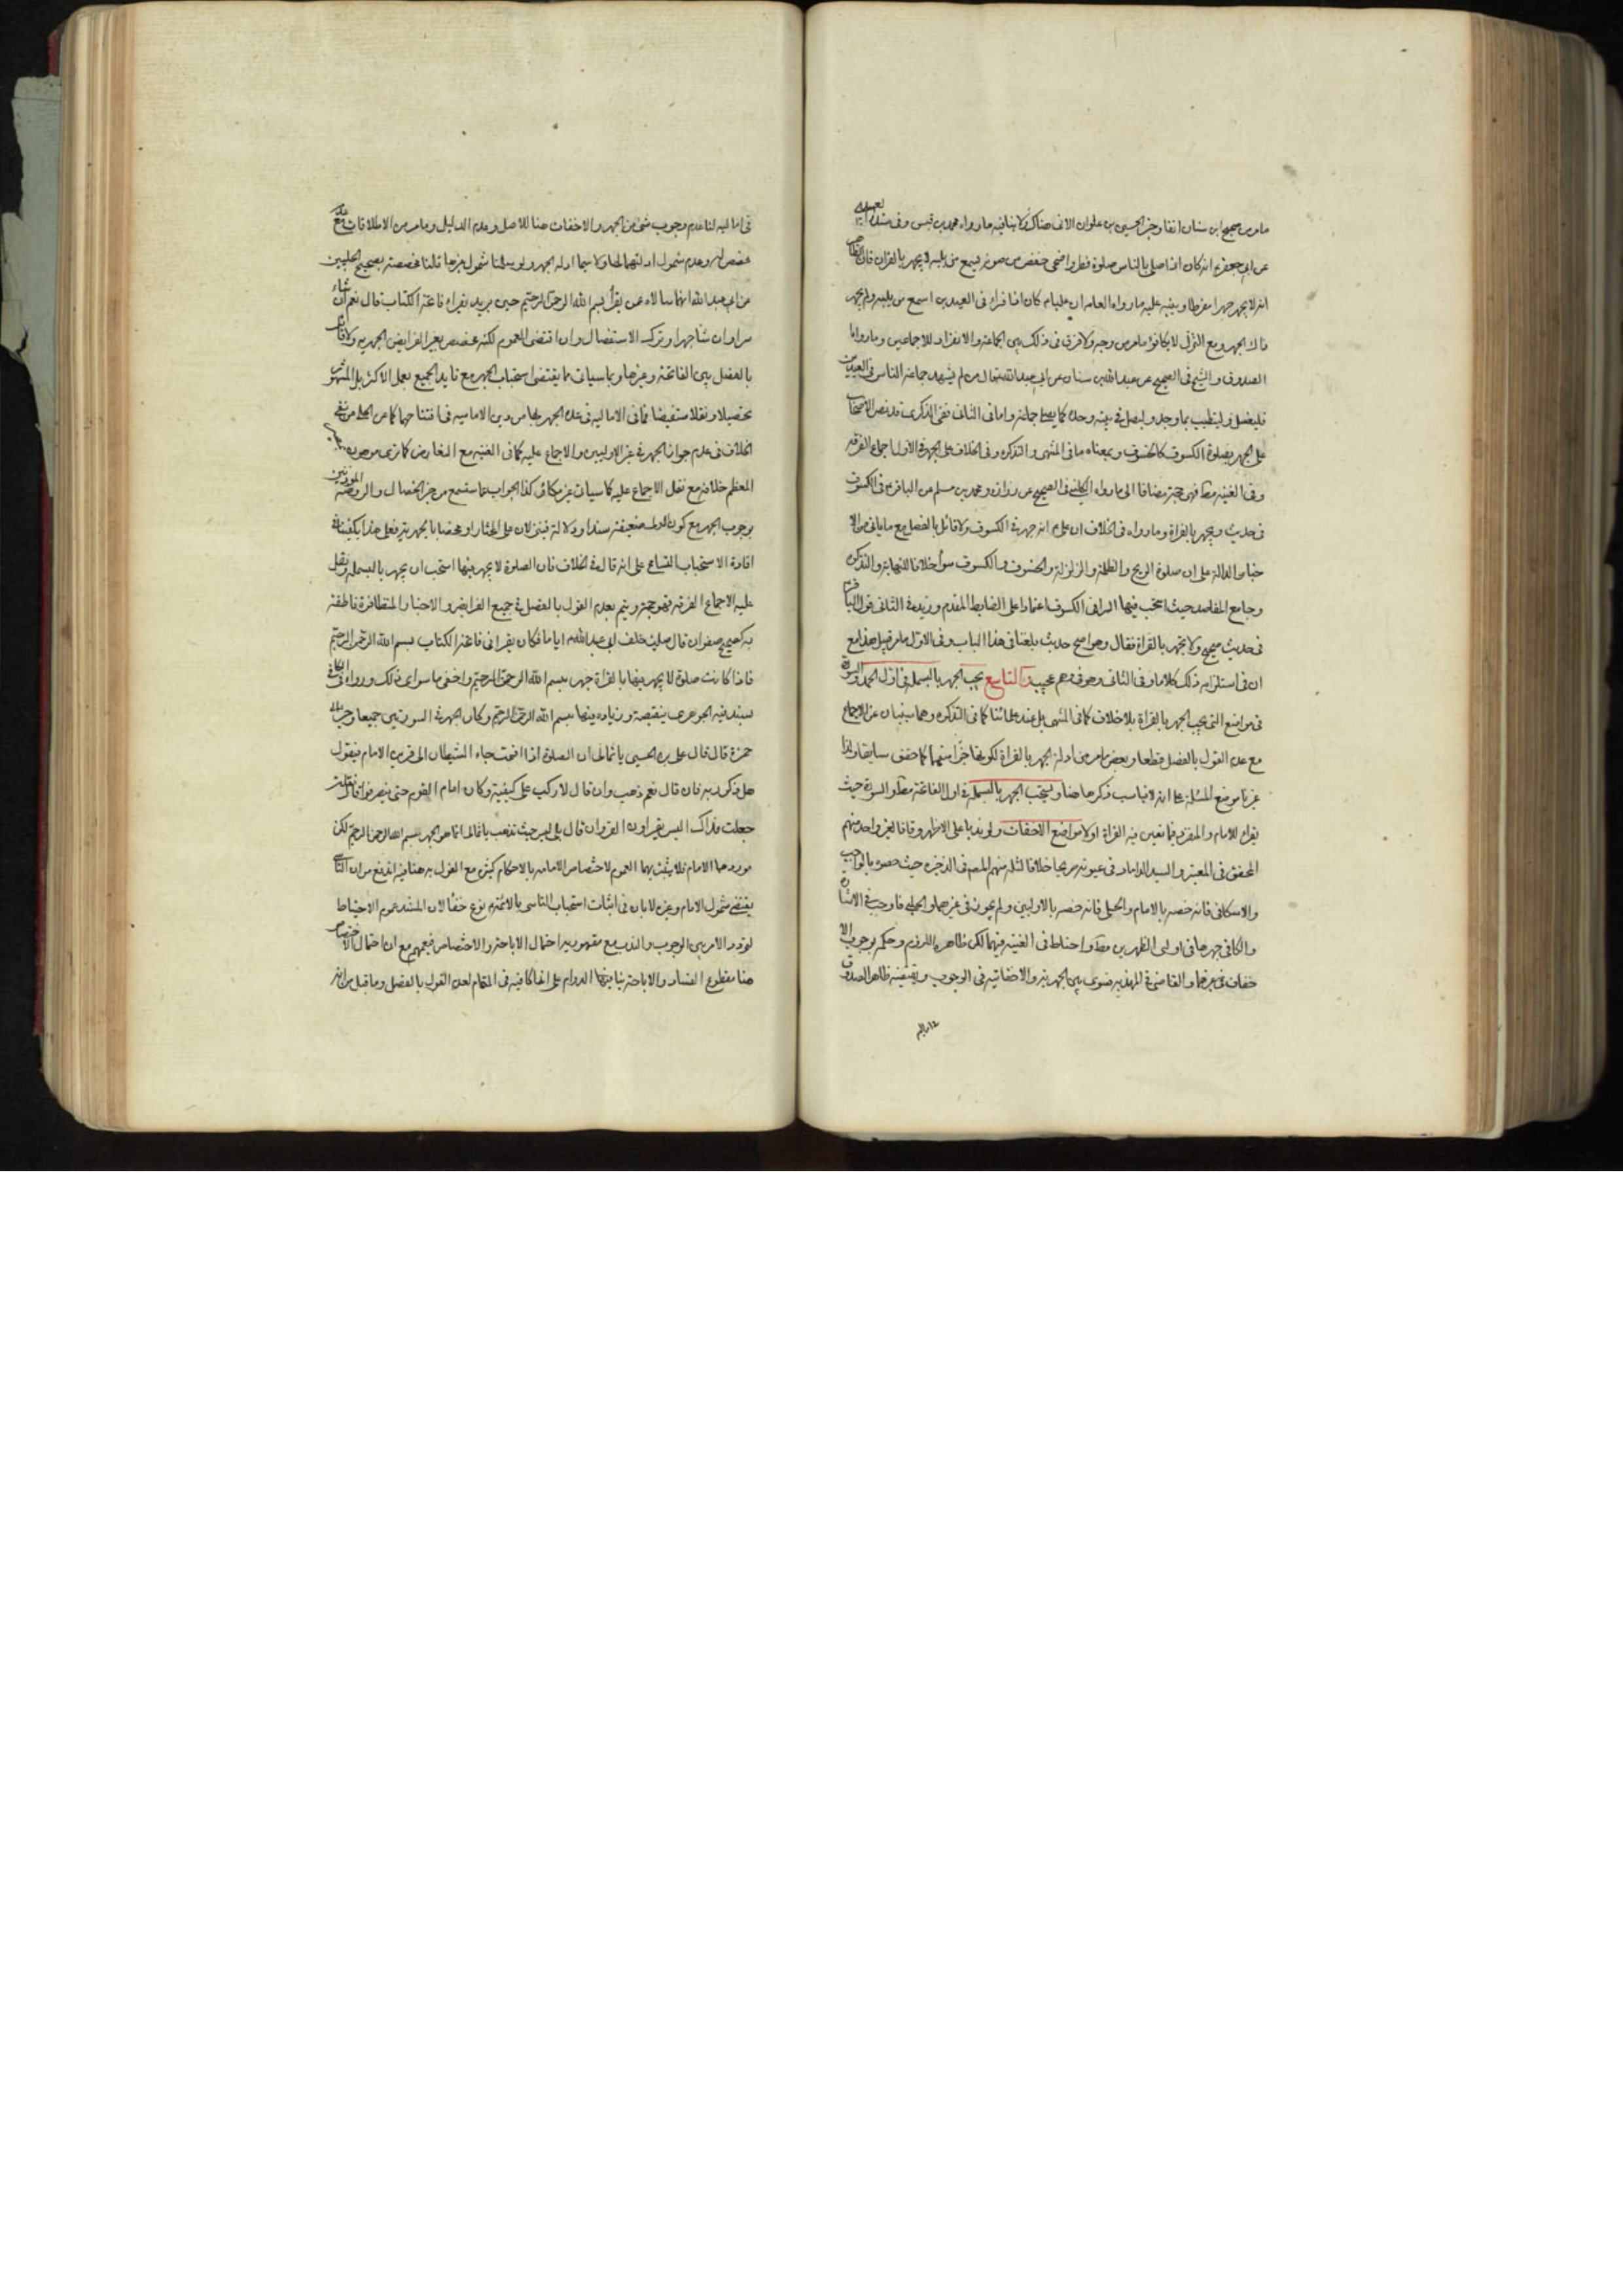 مامر من صحيح ابن سنان انفا وخبر الحسين بن علوان الاتى هناك ولا ينافيه مارواه محمد بن قيس وفى سنده
عن ابى جعفر انه كان اذا صلى بالناس صلوة فطر واضحى خفض من صوته يسمع من يليه لا يجهر بالقران فان
انه لا يجهر جهرا مفرطا وينبه عليه مارواه العامه ان عليا كان اذا قراء فى العيدين اسمع من يليه ولم يجهر
ذلك الجهر ومع النزل لا يكافؤ مامر من وجوه ولا فرق فى ذلك بين الجماعة والانفراد للاجماعين وما رواه
الصدوق والشيخ فى الصحيح عن عبد الله بن سنان عن ابى عبد الله قال من لم يشهد جماعة الناس فى العيدين
فليغتسل وليتطيب بما وجد وليصل فى بيته وحده كما يصلى جماعة واما فى الثانى ففى الذكرى قد نص الاصحاب
على الجهر بصلوة الكسوف كالخسوف وبمعناه ما فى المنتهى والتذكره وفى الخلاف على الجهر فى الاول اجماع الفرقه
وفى الغنيه مط فهو حجة مضافا الى مارواه الكلينى فى الصحيح عن زراره ومحمد بن مسلم عن الباقر فى الكسوف
فى حديث ويجهر بالقراة وما رواه فى الخلاف ان على انه جهر فى الكسوف ولا قائل بالفصل مع ما ياتى من الا
خبار الدالة على ان صلوة الريح والظلمة والزلزلة والخسوف والكسوف سواء خلافا للنهاية والتذكره
وجامع المقاصد حيث استحب فيها السر فى الكسوف اعتمادا على الضابط المقدم وزيد فى الثانى قول الباقر
فى حديث صحيح ولا تجهر بالقراة فقال وهو اصح حديث بلغنا فى هذا الباب وفى الاول مامر قبيل هذا مع
ان فى استلزامه ذلك كلاما وفى الثانى وهو وهم عجيب والتاسع يجب الجهر بالبسملة فى اول الحمد والسورة
فى مواضع التى يجب الجهر بالقراة بلا خلاف كما فى المنتهى بل عند علمائنا كما فى التذكره وهما ينبئان عن الاجماع
مع عدم القول بالفصل قطعا وبعض مامر من ادلة الجهر بالقراة لكونها جزا منهما كما حقق سابقا ولذا
غيرنا موضع المسئلة على انه لا يناسب ذكرها هنا ويستحب الجهر بالبسملة فى اول الفاتحة مط والسورة حيث
يقراء للامام والمنفرد فيما تعين فيه القراة اولا مواضع الاخفات ولو ندبا على الاظهر وفاقا لغير واحد منهم
المحقق فى المعتبر والسيد الداماد فى عيونه صريحا خلافا لثلة منهم المص فى الذخيره حيث خصه بالواجب
والاسكافى فانه خصه بالامام والحلى فانه خصه بالاوليين ولم يجوز فى غيرهما والحلبى فاوجب فى الاشارة
والكافى جهرها فى اولى الظهرين مط واحتاط فى الغنيه فيهما لكن ظاهره اللزوم وحكم بوجوب الا
خفات فى غيرهما والقاضى فى المهذب فسوى بين الجهريه والاخفاتيه فى الوجوب ويقتضيه ظاهر الصدوق
فى اماليه لنا عدم وجوب شئ من الجهر والاخفات هنا للاصل وعدم الدليل ومامر من الاطلاقات مع
عدم شمول ادلتهما لهما ولا سيما ادلة الجهر ولو سلمنا شمول غيرها قلنا مخصصة بصحيح الحلبيين
عن ابى عبد الله انهما سالاه عن يقرأ بسم الله الرحمن الرحيم حين يريد يقراء فاتحة الكتاب قال نعم ان شاء
سرا وان شا جهرا وترك الاستفصال وان اقتضى العموم لكنه مخصص بغير الفرايض الجهريه ولا قائل
بالفصل بين الفاتحة وغيرها وبما سياتى مما يقتضى استحباب الجهر مع تايد الجميع بعمل الاكثر بل المشهور
تحصيلا ونقلا مستفيضا فما فى الاماليه فى عده الجهر بها من دين الاماميه فى افتتاحهما كما عن الحلى من نفى
الخلاف فى عدم جواز الجهر فى غير الاوليين والاجماع عليه كما فى الغنيه مع التعارض كما ترى موهون
المعظم خلافه مع نقل الاجماع عليه كما سيات غير مكافئ كذا الجواب عما ستسمع من خبر الخصال والروضة
بوجوب الجهر مع كون الدال ضعيفة سندا ودلالة فينزلان على المختار او يخصا بالجهرية فعلى هذا يكفينا فى
افادة الاستحباب التسامح على انه قال فى الخلاف فان الصلوة لا يجهر فيها استحب ان يجهر بالبسملة ونقل
عليه الاجماع الفرقه فهو حجة ويتم بعدم القول بالفصل فى جميع الفرايض والاخبار المتظافرة ناطقة
به كصحيح صفوان قال صليت خلف ابى عبد الله اياما فكان يقرا فى فاتحة الكتاب بسم الله الرحمن الرحيم
فاذا كانت صلوة لا يجهر فيها بالقراة جهر ببسم الله الرحمن الرحيم واخفى ما سوى ذلك ورواه فى الكافى
بسند فيه الجوهرى بنقيصة وزياده منها بسم الله الرحمن الرحيم وكان يجهر فى السورتين جميعا وخبر ابى
حمزة قال قال على بن الحسين يا ثمالى ان الصلوة اذا اقيمت جاء الشيطان الى قرين الامام فيقول
هل ذكر ربه فان قال نعم ذهب وان قال لا ركب على كتفيه وكان امام القوم حتى ينصرفوا قال فقلت
جعلت فداك اليس يقراون القران قال بلى ليس حيث تذهب يا ثمالى انما هو الجهر ببسم الله الرحمن الرحيم لكن
موردهما الامام فلا يثبت بهما العموم لاختصاص الامامه بالاحكام كثير مع القول به هنا فيه اندفع من ان التاسى
يقتضى شمول الامام وغيره لابان فى اثبات استحباب التاسى بالائمة نوع خفأ لان المستند عموم الاحتياط
لتردد الامر بين الوجوب والندب مع مقهوريه احتمال الاباحة والاختصاص فيعمهم مع ان احتمال الاختصاص
هنا مقطوع الفساد والاباحة ينافيها الدوام على انها كافيه فى المقام لعدم القول بالفصل وما قيل من انه